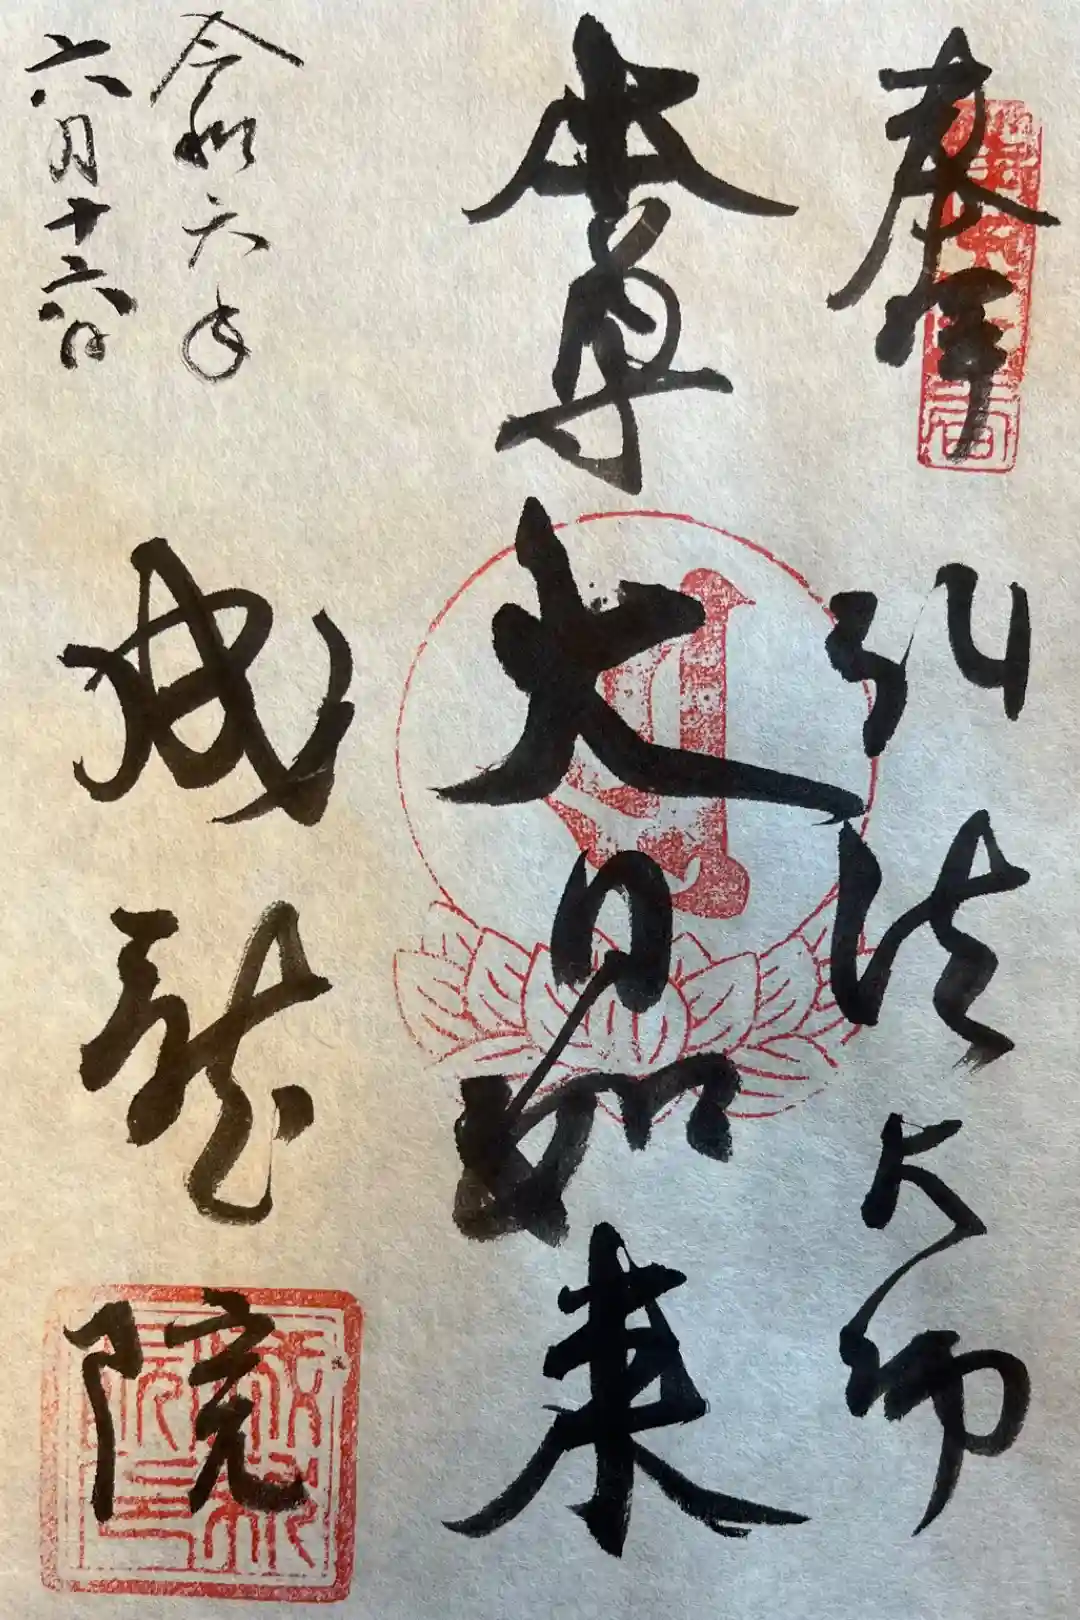 奉拝
弘法大師
本尊
大日如来
令和六年
六月十六日
成龍院